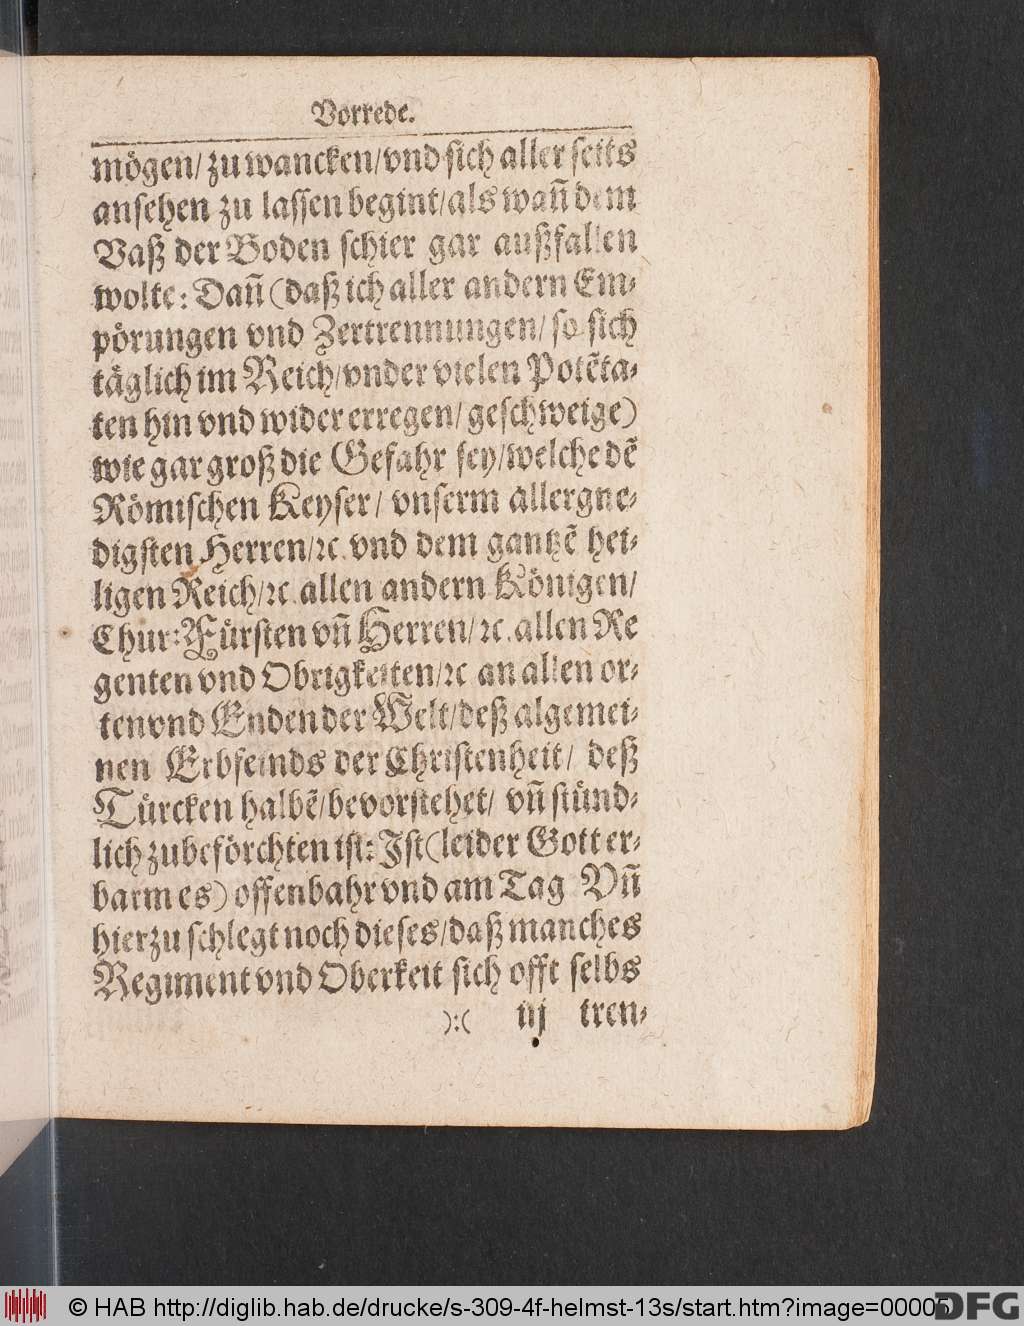 Vorrede.
mögen/ zu wancken/ vnd sich aller seits
ansehen zu lassen begint/ als wañ dem
Vaß der Boden schier gar außfallen
wolte: Dañ (daß ich aller andern Em-
pörungen vnd Zertrennungen/ so sich
täglich im Reich/ vnder vielen Potẽta-
ten hin vnd wider erregen/ geschweige)
wie gar groß die Gefahr sey/ welche dẽ
Römischen Keyser/ vnserm allergne-
digsten Herren/ ꝛc. vnd dem gantzẽ hei-
ligen Reich/ ꝛc. allen andern Königen/
Chur-Fürsten vñ Herren/ ꝛc. allen Re
genten vnd Obrigkeiten/ ꝛc an allen or-
ten vnd Enden der Welt/ deß algemei-
nen Erbfeinds der Christenheit/ deß
Türcken halbẽ/ bevorstehet/ vñ stünd-
lich zubeförchten ist: Ist (leider Gott er-
barm es) offenbahr vnd am Tag Vñ
hierzu schlegt noch dieses/ daß manches
Regiment vnd Oberkeit sich offt selbs
):( iij tren-
© HAB http://diglib.hab.de/drucke/s-309-4f-helmst-13s/start.htm?image=00005
DFG